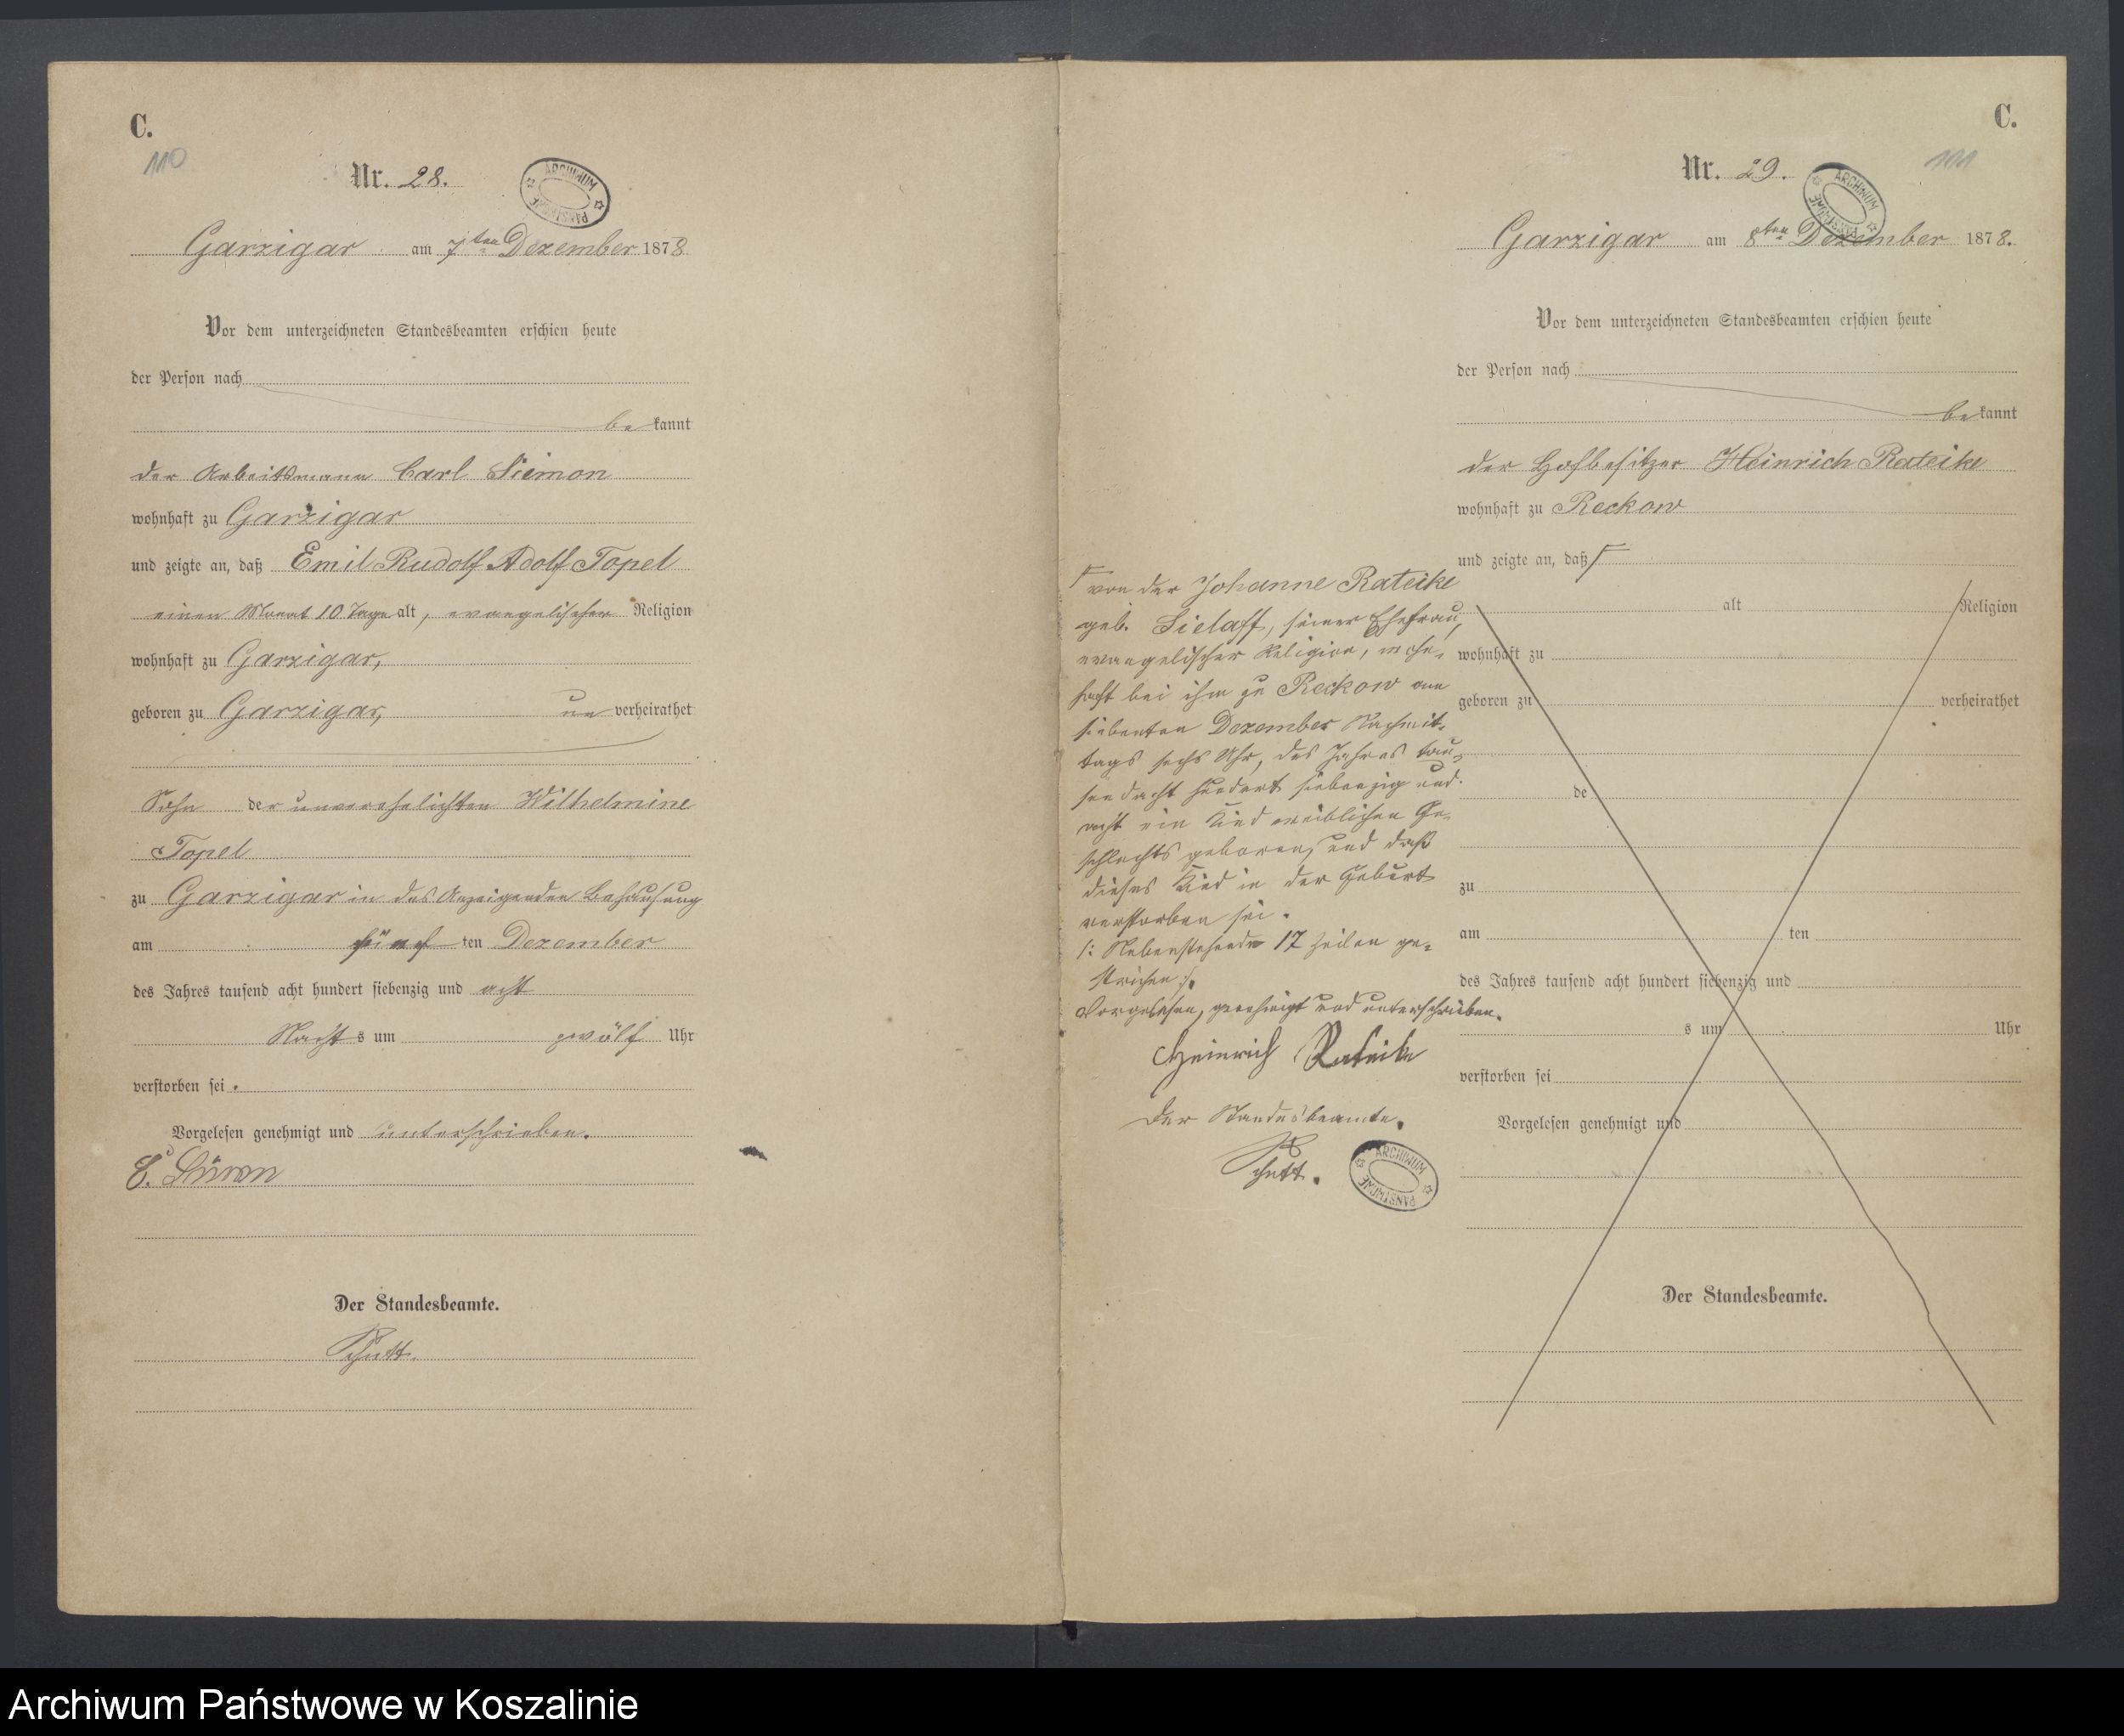 C.
110
Nr. 28.
ARCHIWUM PAŃSTWOWE
Garzigar am 7ten Dezember 1878
Vor dem unterzeichneten Standesbeamten erschien heute
der Person nach
bekannt
der Arbeitsmann Carl Siemon
wohnhaft zu Garzigar
und zeigte an, daß Emil Rudolf Adolf Topel
einen Monat 10 Tage alt, evangelischer Religion
wohnhaft zu Garzigar,
geboren zu Garzigar, unverheirathet
Sohn der unverehelichten Wilhelmine
Topel
zu Garzigar in des Anzeigenden Behausung
am fünften Dezember
des Jahres tausend acht hundert siebenzig und acht
Nachts um zwölf Uhr
verstorben sei.
Vorgelesen genehmigt und unterschrieben.
C.
Der Standesbeamte.
Schutt.
C.
111
Nr. 29.
ARCHIWUM PAŃSTWOWE
Garzigar am 8ten Dezember 1878.
Vor dem unterzeichneten Standesbeamten erschien heute
der Person nach
bekannt
der Hofbesitzer Heinrich Rateike
wohnhaft zu Reckow
und zeigte an, daß
von der Johanne Rateike
geb. Sielaff, seiner Ehefrau,
evangelischer Religion, wohn-
haft bei ihm zu Reckow am
siebenten Dezember Nachmit-
tags sechs Uhr, des Jahres tau-
send acht hundert siebenzig und
acht ein Kind weiblichen Ge-
schlechts geboren, und daß
dieses Kind in der Geburt
verstorben sei.
/: Nebenstehende 17 Zeilen ge-
strichen :/.
Vorgelesen, genehmigt und unterschrieben.
Heinrich Rateike
Der Standesbeamte.
Schutt.
ARCHIWUM PAŃSTWOWE
alt Religion
wohnhaft zu
geboren zu verheirathet
de
zu
am ten
des Jahres tausend acht hundert siebenzig und
s um Uhr
verstorben sei
Vorgelesen genehmigt und
Der Standesbeamte.
Archiwum Państwowe w Koszalinie